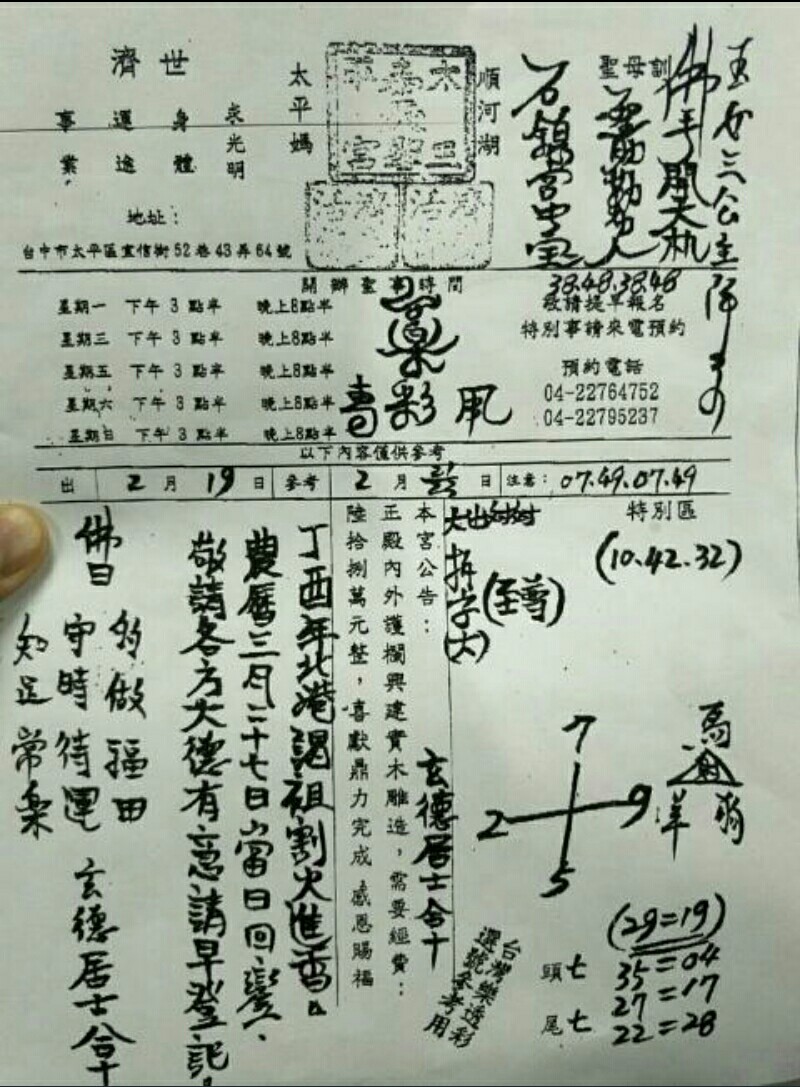 玉女三公主降
佛手開天机
聖母訓
石領宮中
順河湖
太平媽
求光明
身體
運途
事業
濟世
地址：
台中市太平區宜信街52巷43弄64號
開辦聖事時間
星期一 下午3點半 晚上8點半
星期三 下午3點半 晚上8點半
星期五 下午3點半 晚上8點半
星期六 下午3點半 晚上8點半
星期日 下午3點半 晚上8點半
38.48.38.48
敬請提早報名
特別事請來電預約
預約電話
04-22764752
04-22795237
以下內容僅供參考
出 2月19日 參考 2月 日 注意：07.49.07.49
特別區
(10.42.32)
拆字(大)
(至尊)
7
2 9
5
馬
羊
(29=19)
頭七 35=04
27=17
尾七 22=28
台灣樂透彩
選號參考用
本宮公告：
正殿內外護欄興建實木雕造，需要經費：
陸拾捌萬元整，喜獻鼎力完成 感恩賜福
玄德居士合十
丁酉年北港謁祖割火進香。
農曆三月二十七日當日回鑾、
敬請各方大德有意請早登記。
佛曰
多做福田
守時待運
知足常樂
玄德居士合十